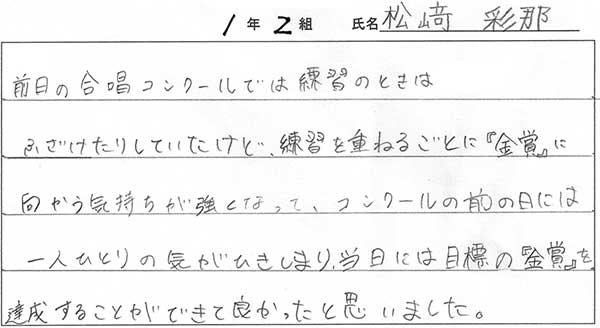 1年2組 氏名 松﨑 彩那
前日の合唱コンクールでは練習のときは
ふざけたりしていたけど、練習を重ねるごとに『金賞』に
向かう気持ちが強くなって、コンクールの前の日には
一人ひとりの気がひきしまり、当日には目標の『金賞』を
達成することができて良かったと思いました。